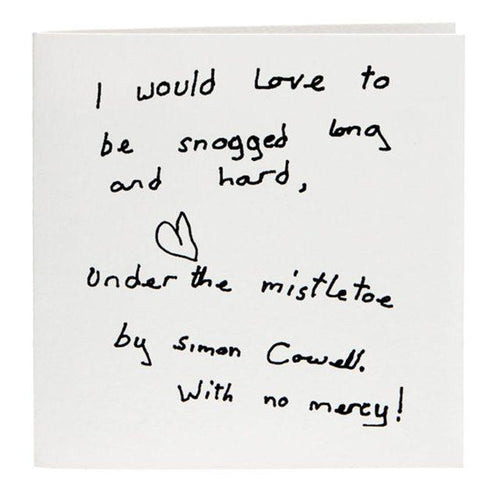 I would Love to
be snogged long
and hard,
under the mistletoe
by simon Cowell.
With no mercy!